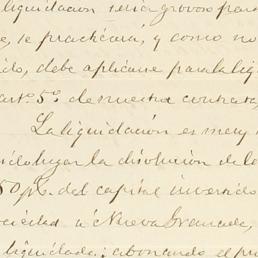 liquidacion seria grovoso para
se practicará, y como no
debe aplicarse para la liq
art.º 5.º de nuestra contrata,
La liquidación es muy
lugar la disolución de la
50 p% del capital invertido
ociedad á Nueva Granada,
liquidada; abonando el pr